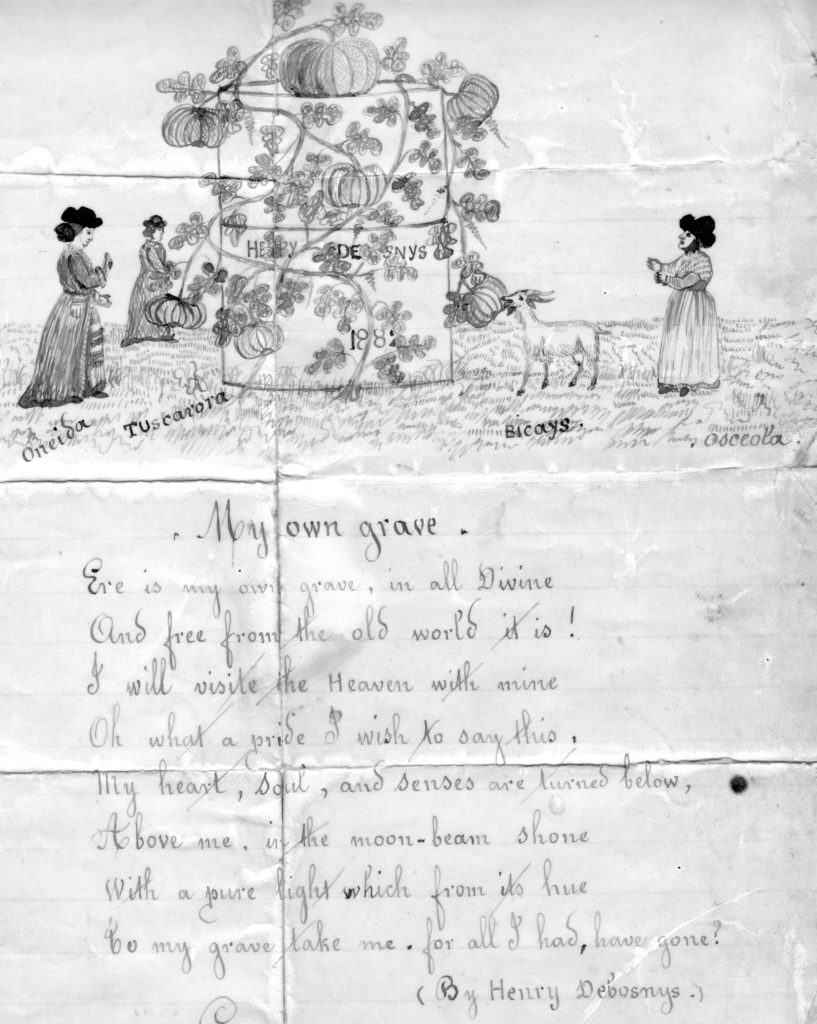 HENRY DE SNYS
1882
Oneida
Tuscarora
Bicays.
. Osceola.
. My own grave .
Ere is my own grave, in all Divine
And free from the old world it is !
I will visite the Heaven with mine
Oh what a pride I wish to say this.
My heart, soul, and senses are turned below,
Above me, in the moon-beam shone
With a pure light which from its hue
To my grave take me. for all I had, have gone?
(By Henry Debosnys.)